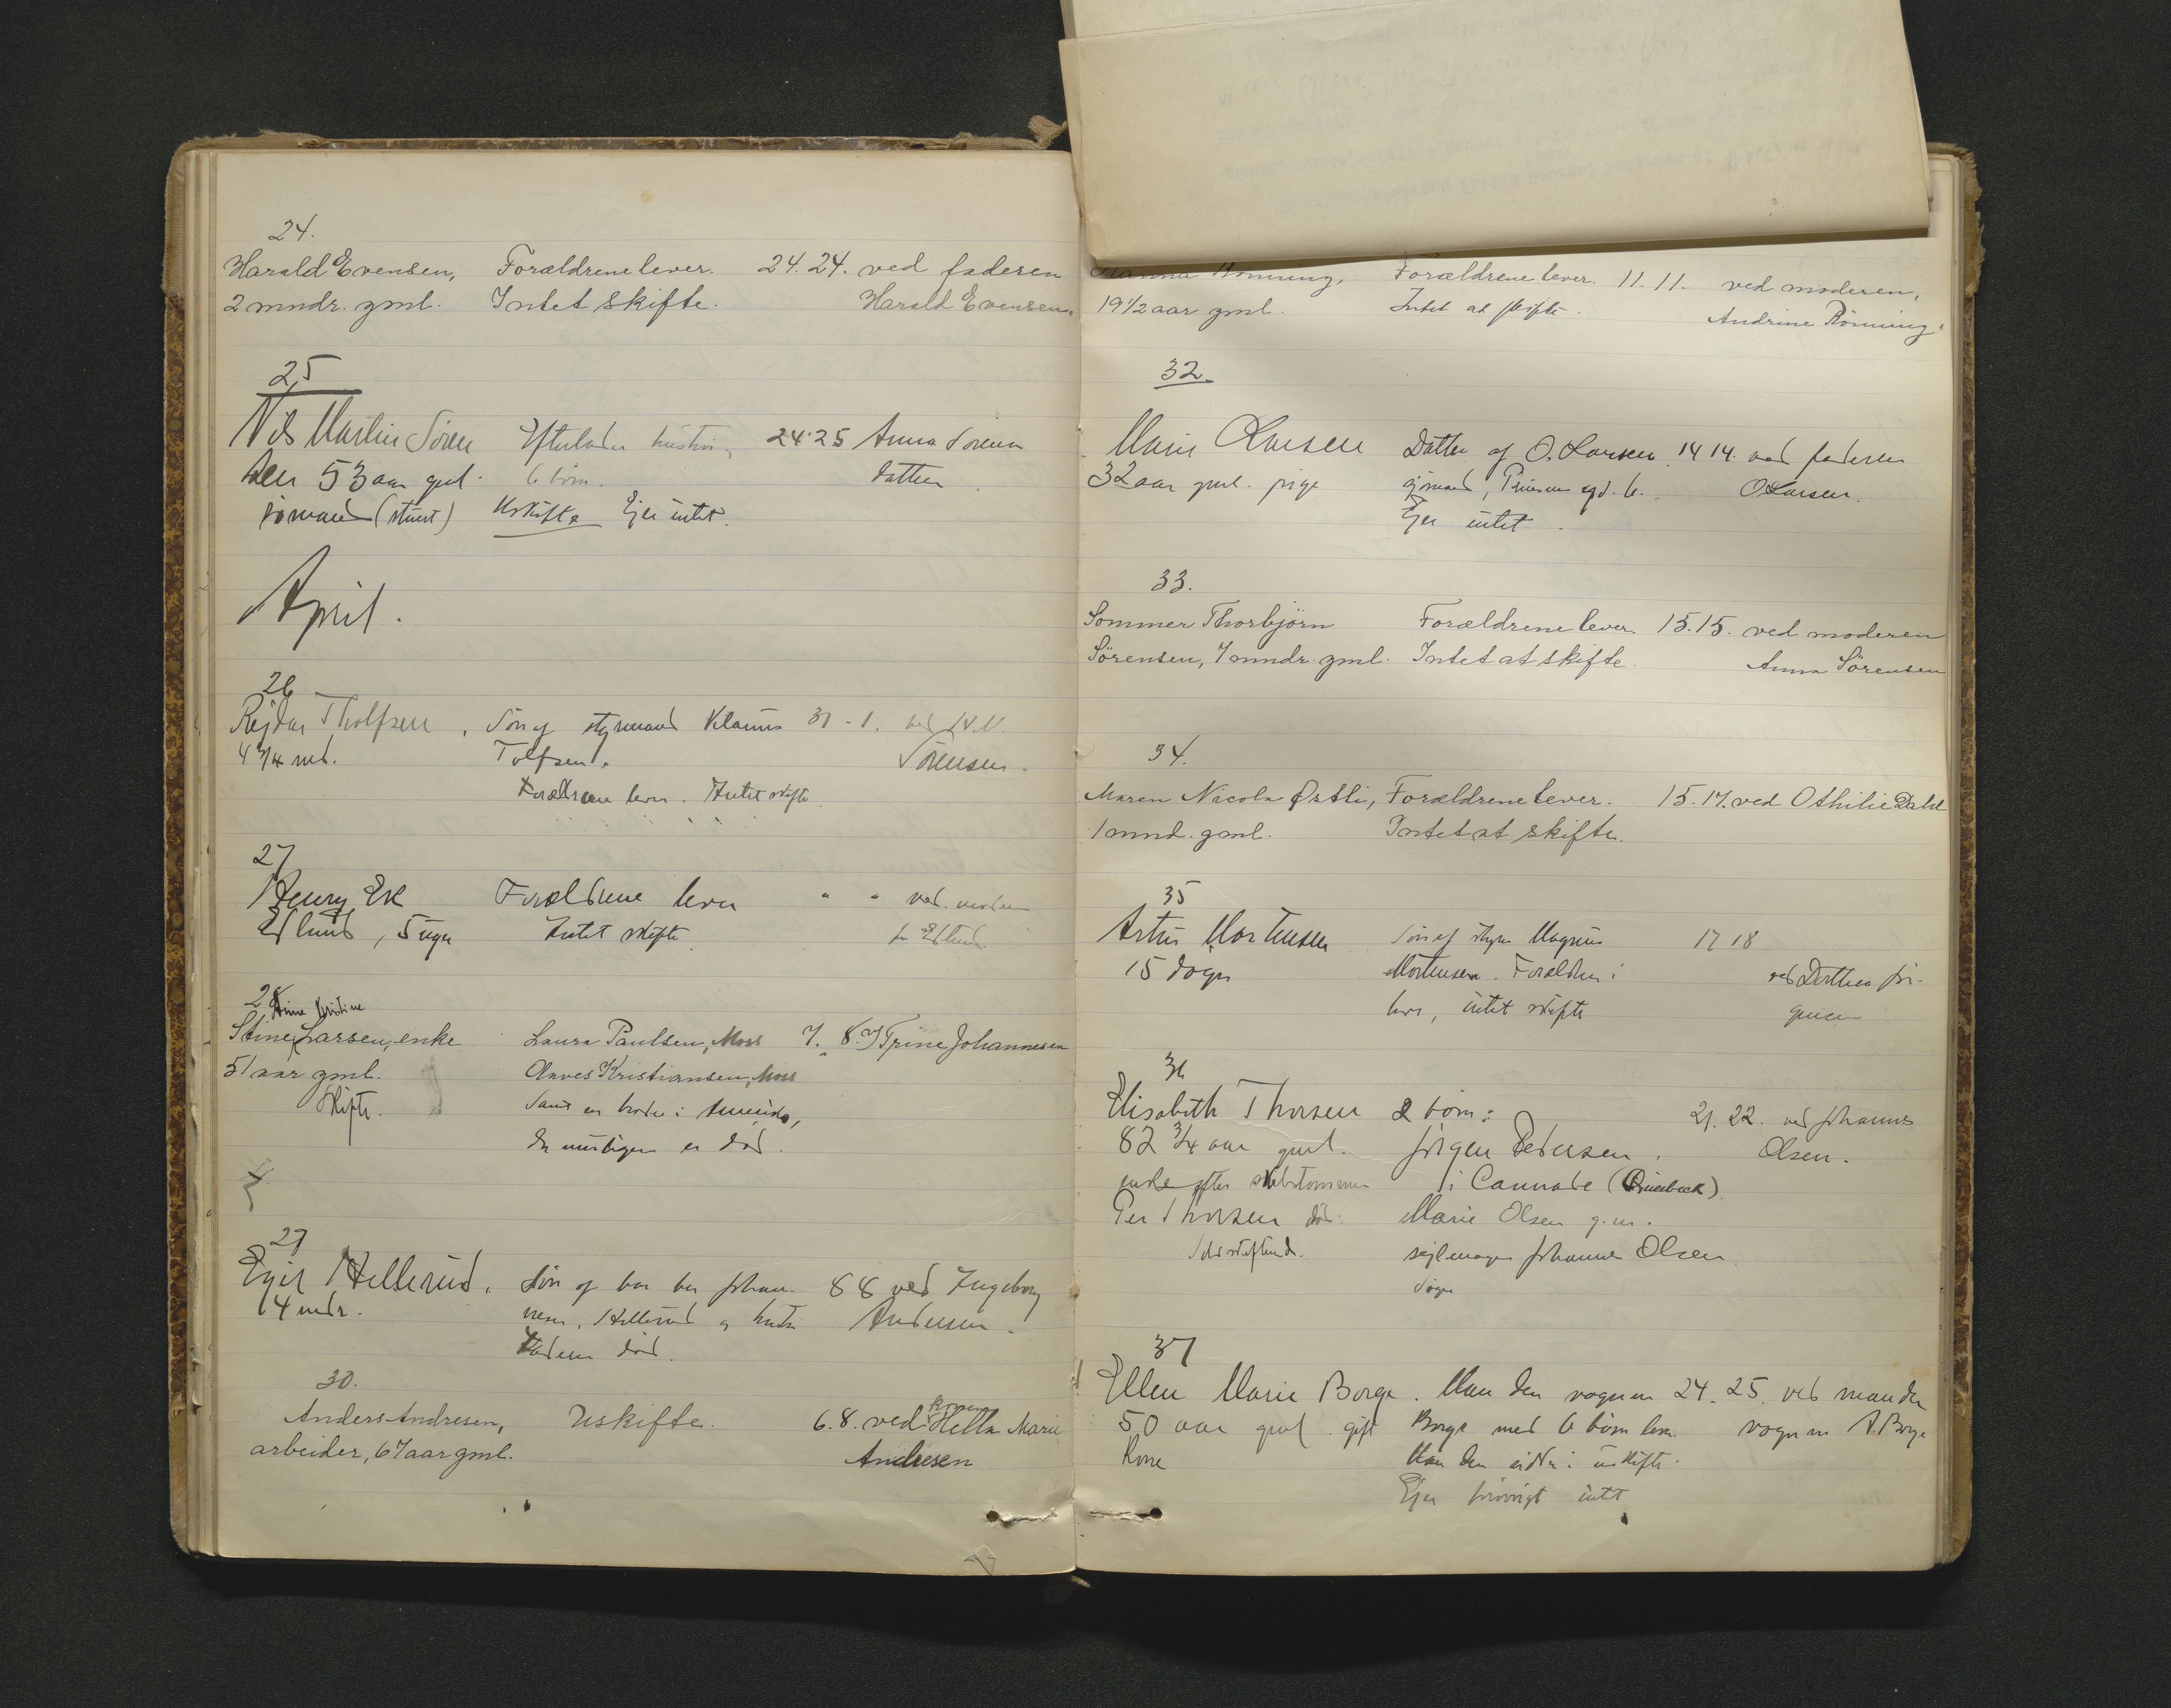 24.
Harald Evensen, Forældrene lever. 24. 24. ved faderen
2 mndr. gml. Intet skifte. Harald Evensen.
25
Nils Martin Sören Efterlader hustru 24 25 Anna Sörensen
sen 53 aar gml. 6 börn. datter
sömand (stuert) Uskifte Ejer intet.
April.
26
Rejdar Tholfsen, Sön af styrmand 31 - 1. ved N.N.
4 3/4 md. Tolfsen. Sörensen.
Forældrene lever. Intet skifte
27
Henry Forældrene lever " " ved moderen
Edlund, 5 uger Intet skifte. Edlund
28
Stine Kristine
Stine Larsen, enke Laura Paulsen, Moss 7. 8. Trine Johannesen
51 aar gml. Kristiansen, Moss
Skifte. Samt en broder i Amerika,
der muligens er död.
29
Egil Hellerud. Sön af Johan- 8 8 ved Ingeborg
14 mdr. nesen, Hellerud og hustru Andersen.
Faderen död.
30.
Anders Andresen, Uskifte. 6. 8. ved konen Hella Marie
arbeider, 67 aar gml. Andresen
Rönning, Forældrene lever. 11. 11. ved moderen,
19 1/2 aar gml. Intet at skifte. Andrine Rönning.
32.
Marie Larsen Datter af O. Larsen. 14 14. ved faderen
32 aar gml. pige sjömand, O. Larsen.
Ejer intet.
33.
Sommer Thorbjörn Forældrene lever. 15. 15. ved moderen
Sörensen, 7 mndr. gml. Intet at skifte. Anna Sörensen
34.
Maren Nicola Østli, Forældrene lever. 15. 17. ved Othilie Dahl
1 mnd. gml. Intet at skifte.
35
Artur Mortensen Sön af styrm Magnus 17 18
15 dage Mortensen. Forældrene ved Dorthea Jör-
lever, intet skifte gensen
36
Elisabeth Thorsen 2 börn: 21. 22. ved Johannes
82 3/4 aar gml. Jörgen Pedersen. Olsen.
enke efter skibstömmer i Cannada
Per Thorsen död. Marie Olsen g.m.
Selvskiftende. sejlmager Johannes Olsen
37
Ellen Marie Borge. Manden vognm 24. 25. ved manden
50 aar gml gift Borge med 6 börn lever. vognm A. Borge
Kone Manden sidder i uskifte.
Ejer forövrigt intet